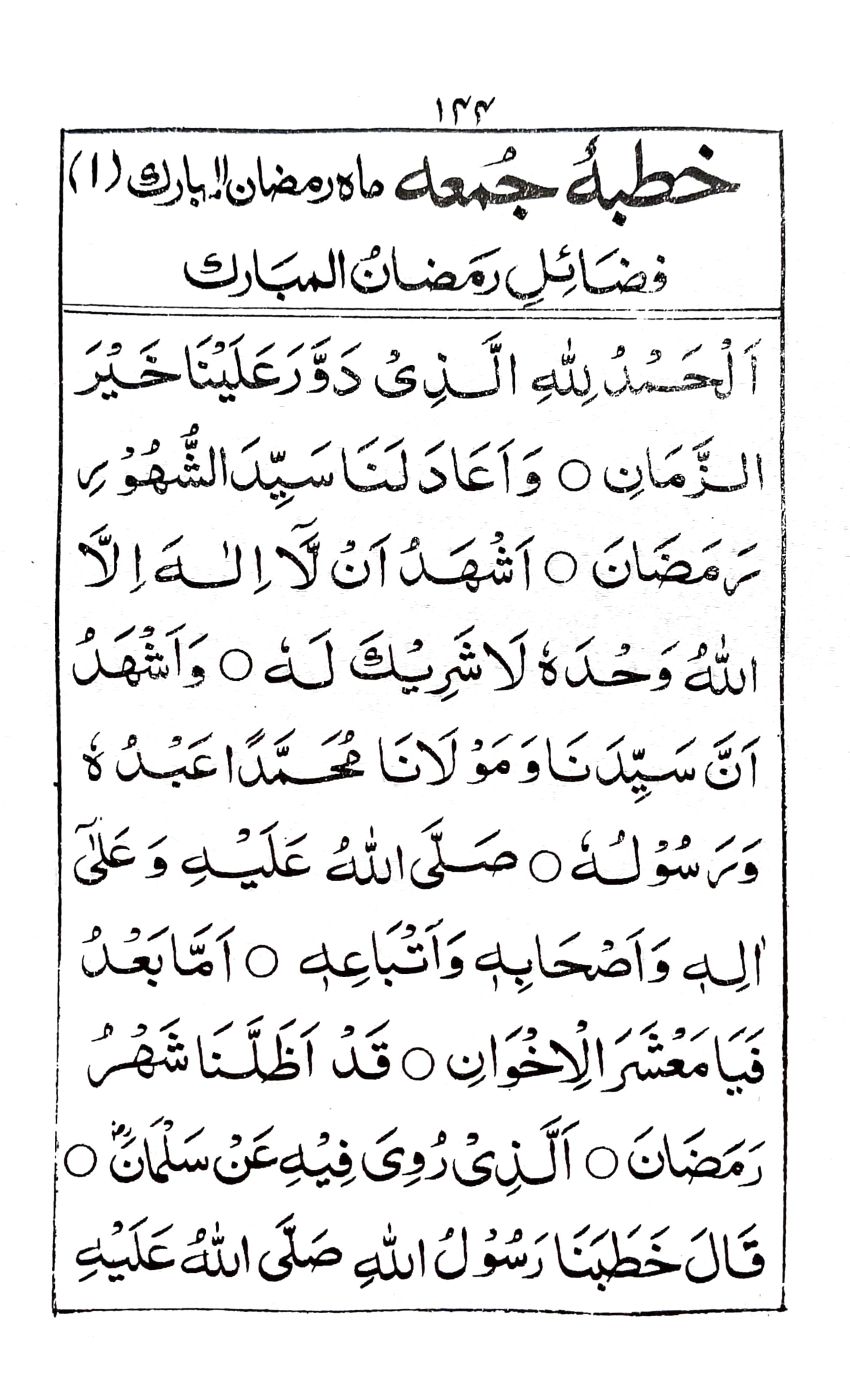 ۱۴۴
خطبهٔ جُمعه ماه رمضان المبارك (۱)
فضَائِلِ رَمَضانُ المبَارك
اَلْحَمْدُ لِلّٰهِ الَّذِىْ دَوَّرَ عَلَيْنَا خَيْرَ
الزَّمَانِ ○ وَاَعَادَ لَنَا سَيِّدَ الشُّهُوْرِ
رَمَضَانَ ○ اَشْهَدُ اَنْ لَّآ اِلٰهَ اِلَّا
اللّٰهُ وَحْدَهٗ لَا شَرِيْكَ لَهٗ ○ وَاَشْهَدُ
اَنَّ سَيِّدَنَا وَمَوْلَانَا مُحَمَّدًا عَبْدُهٗ
وَرَسُوْلُهٗ ○ صَلَّى اللّٰهُ عَلَيْهِ وَعَلٰٓى
اٰلِهٖ وَاَصْحَابِهٖ وَاَتْبَاعِهٖ ○ اَمَّا بَعْدُ
فَيَا مَعْشَرَ الْاِخْوَانِ ○ قَدْ اَظَلَّنَا شَهْرُ
رَمَضَانَ ○ اَلَّذِىْ رُوِىَ فِيْهِ عَنْ سَلْمَانَ ؓ ○
قَالَ خَطَبَنَا رَسُوْلُ اللّٰهِ صَلَّى اللّٰهُ عَلَيْهِ